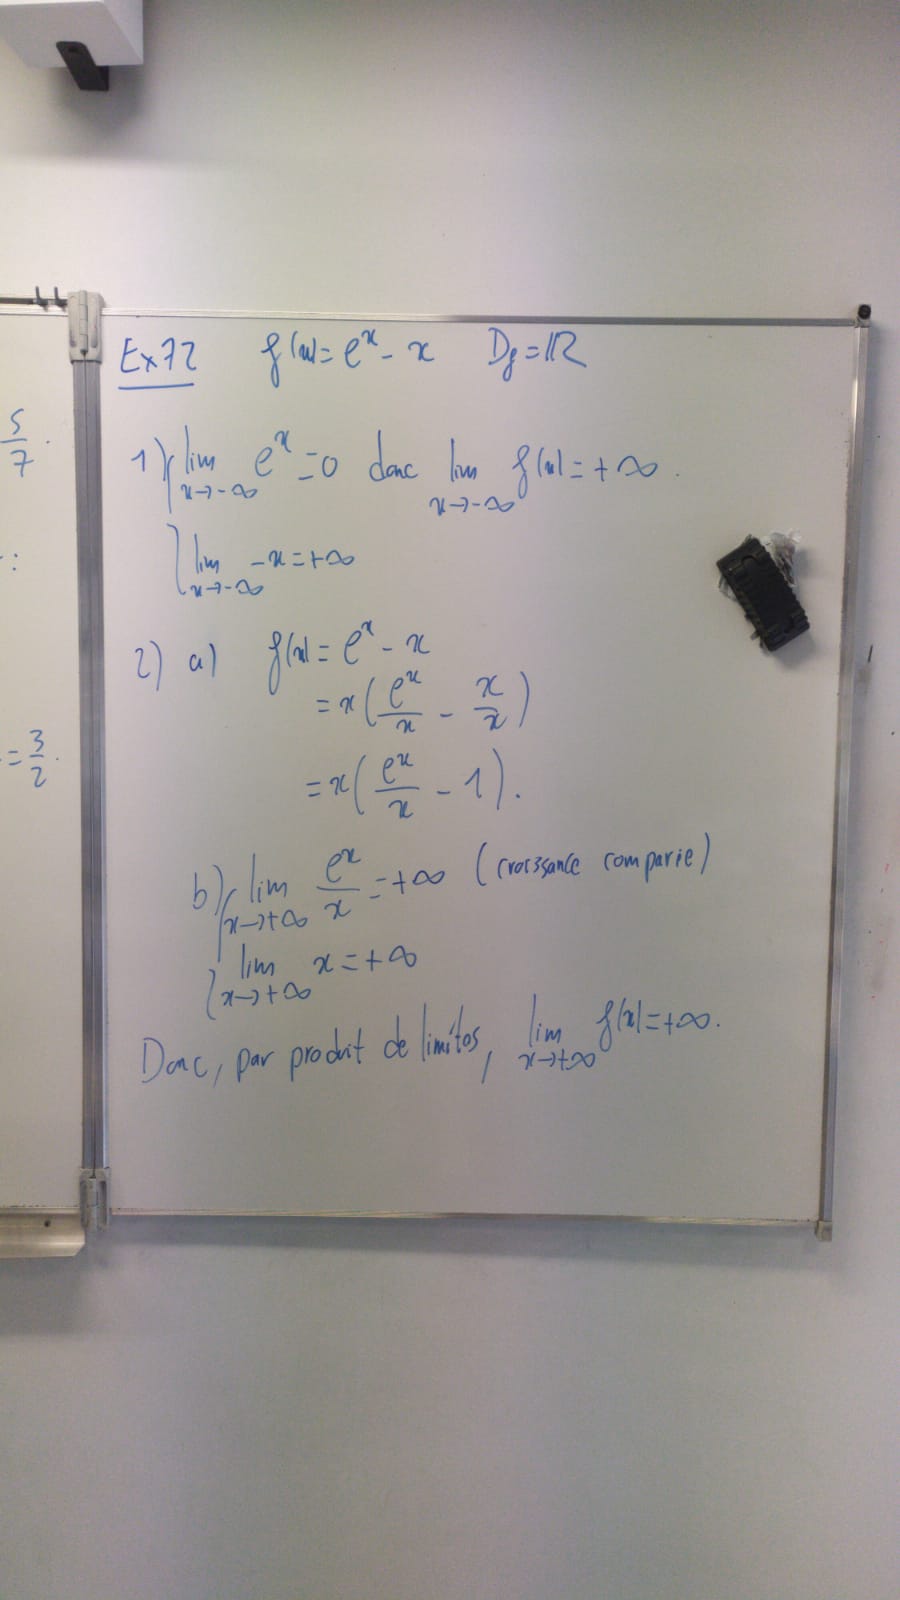 5/7.
:
= 3/2.
Ex72 f(x) = e^x - x Df = ℝ
1) { lim x→-∞ e^x = 0 donc lim x→-∞ f(x) = +∞.
lim x→-∞ -x = +∞
2) a) f(x) = e^x - x
= x(e^x/x - x/x)
= x(e^x/x - 1).
b) { lim x→+∞ e^x/x = +∞ (croissance comparée)
lim x→+∞ x = +∞
Donc, par produit de limites, lim x→+∞ f(x) = +∞.